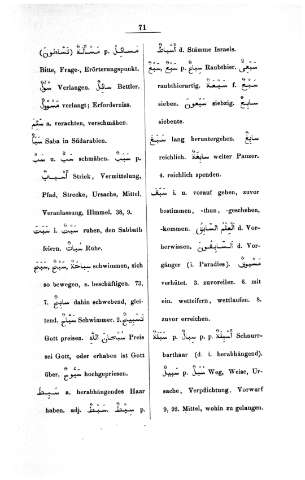 71
مسائل p. مسألة (تساءلون)
Bitte, Frage-, Erörterungspunkt.
سؤل Verlangen. سائل Bettler.
مسؤول verlangt; Erforderniss.
سئم a. verachten, verschmähen.
سبأ Saba in Südarabien.
سب u. سب schmähen. سبب p.
أسباب Strick, Vermittelung,
Pfad, Strecke, Ursache, Mittel.
Veranlassung, Himmel. 36, 9.
سبت i. سبت ruhen, den Sabbath
feiern. سبات Ruhe.
سبح, سبح, سباحة schwimmen, sich
so bewegen, s. beschäftigen. 73,
7. سابح dahin schwebend, glei-
tend. سباح Schwimmer. 2. تسبيح
Gott preisen. سبحان الله Preis
sei Gott, oder erhaben ist Gott
über. سبوح hochgepriesen.
سبط a. herabhängendes Haar
haben. adj. سبط, سبط p.
أسباط d. Stämme Israels.
سبع, سبع p. سباع, سبعون Raubthier.
raubthierartig. سبعة f. سبع
sieben. سبعون siebzig. سابع
siebente.
سبغ lang heruntergehen. سابغ
reichlich. سابغة weiter Panzer.
4. reichlich spenden.
سبق i. u. voraus gehen, zuvor
bestimmen, -thun, -geschehen,
-kommen. العلم السابق d. Vor-
herwissen. السابقون d. Vor-
gänger (i. Paradies). مسبوق
verhütet. 3. zuvoreilen. 6. mit
ein. wetteifern, wettlaufen. 8.
zuvor erreichen.
سبلة p. سبل, أسبلة p. سبال Schnurr-
barthaar (d. i. herabhängend).
سبيل p. سبل Weg, Weise, Ur-
sache, Verpflichtung, Vorwurf
9, 92. Mittel, wohin zu gelangen.